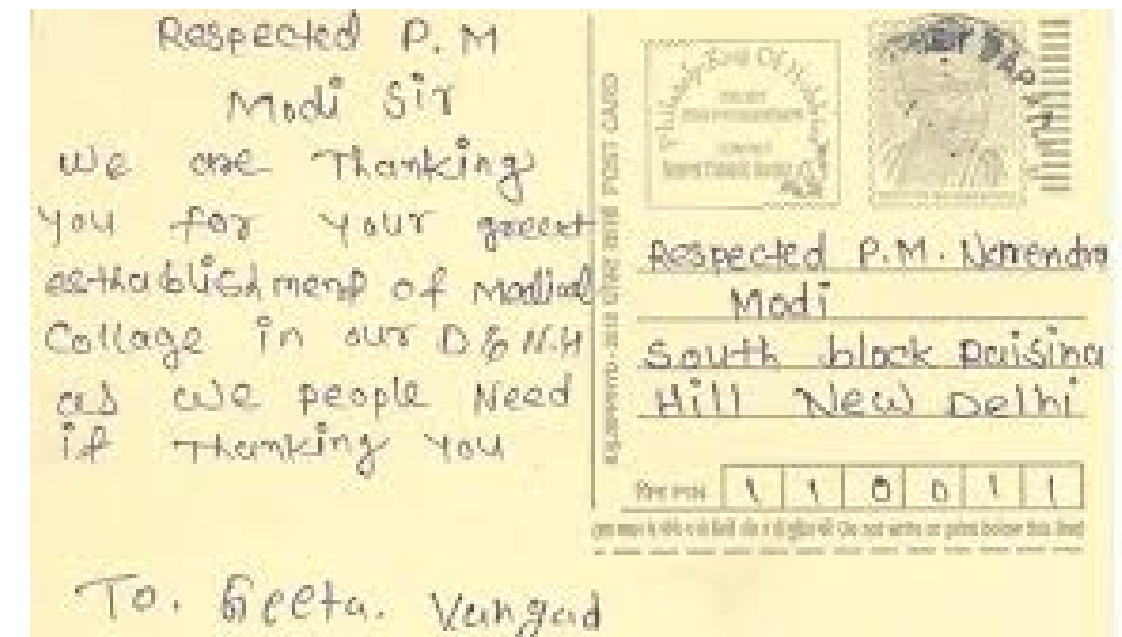 Respected P.M
Modi Sir
We are Thanking
you for your greeat
esthablishment of Madical
Collage in our D & N.H
as we people Need
it Thanking You
To. Geeta. Vangad
POST CARD
Respected P.M. Narendra
Modi
South block Raisina
Hill New Delhi
पिन PIN 110011
Do not write or print below this line